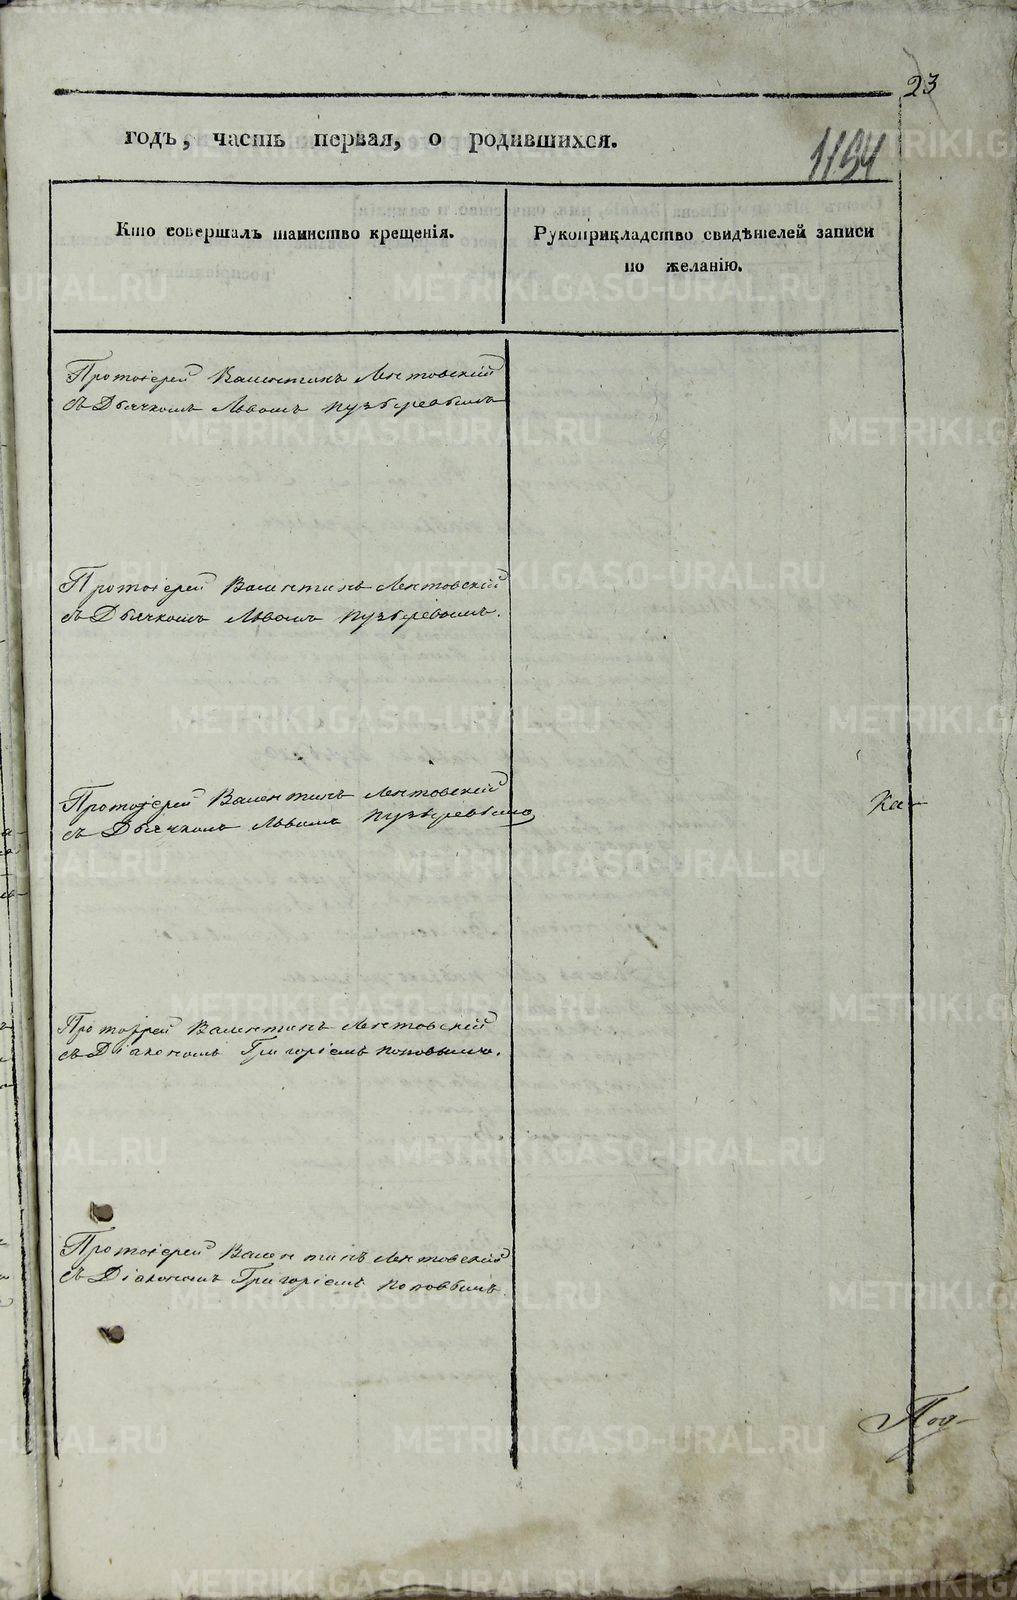 23
годъ, часть первая, о родившихся.
1194
Кто совершалъ таинство крещенія.
Рукоприкладство свидѣтелей записи
по желанію.
Протоіерей Валентинъ Лентовскій
съ Дьячкомъ Львомъ Пузыревымъ
Протоіерей Валентинъ Лентовскій
съ Дьячкомъ Львомъ Пузыревымъ.
Протоіерей Валентинъ Лентовскій
съ Дьячкомъ Львомъ Пузыревымъ
Ка-
Протоіерей Валентинъ Лентовскій
съ Діакономъ Григоріемъ Поповымъ.
Протоіерей Валентинъ Лентовскій
съ Діакономъ Григоріемъ Поповымъ.
Под-
METRIKI.GASO-URAL.RU